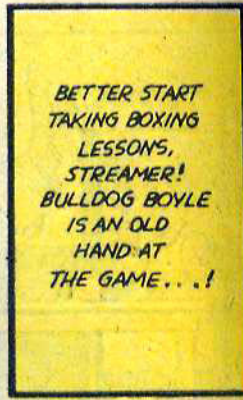 BETTER START
TAKING BOXING
LESSONS,
STREAMER!
BULLDOG BOYLE
IS AN OLD
HAND AT
THE GAME...!